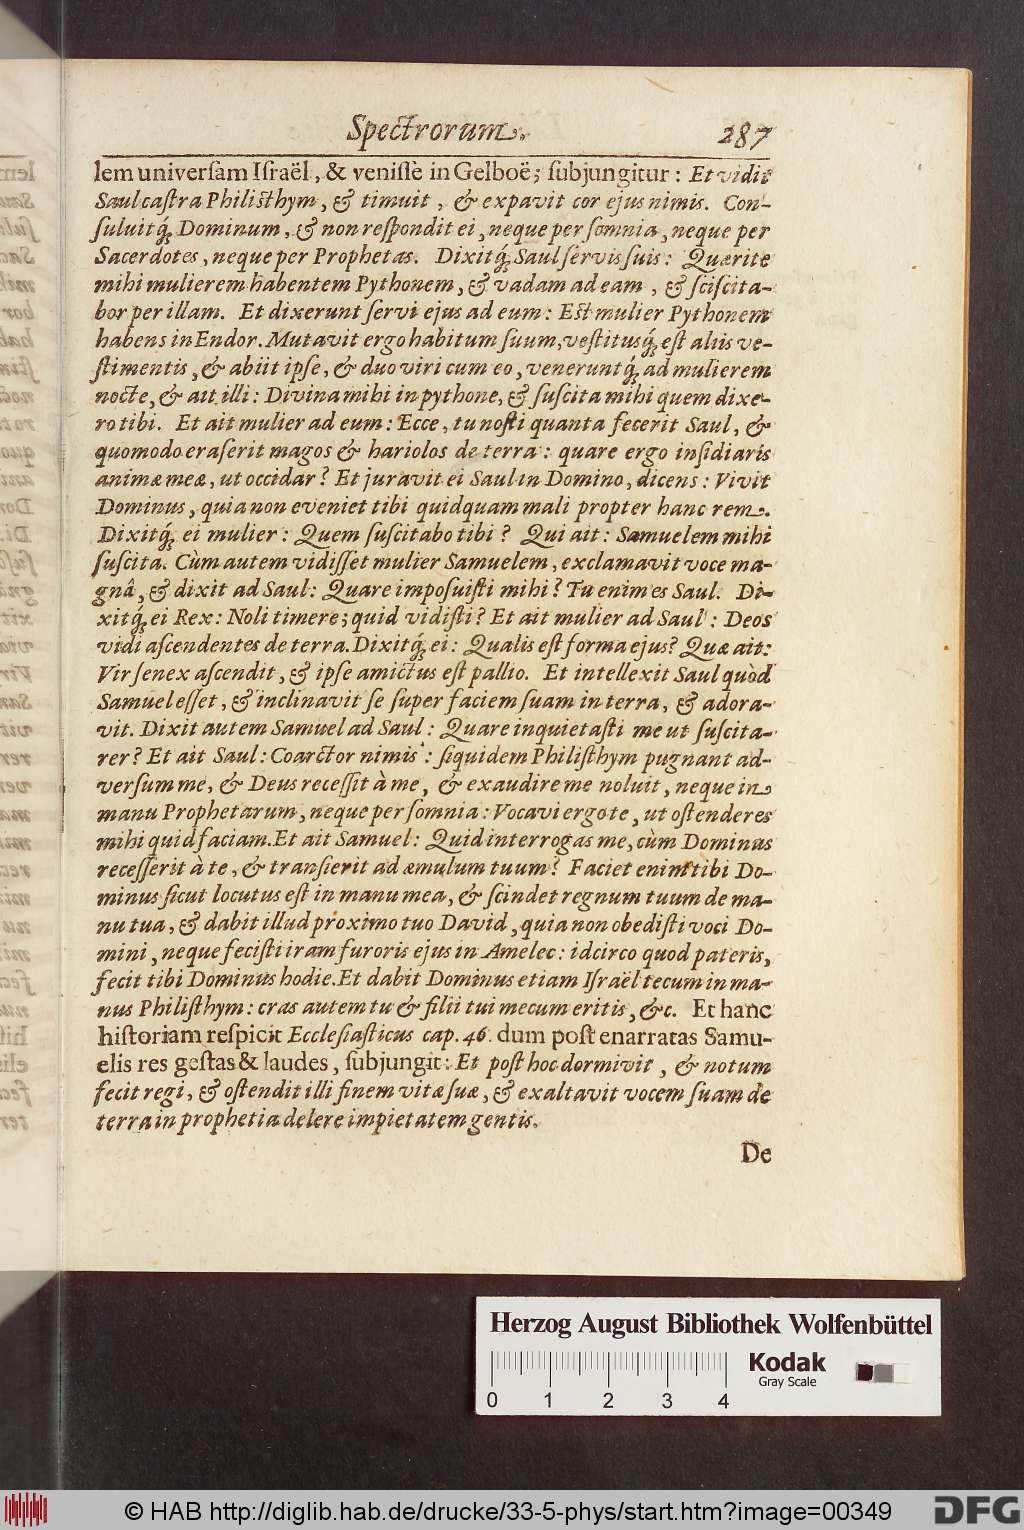 Spectrorum. 287
lem universam Israël, & venissè in Gelboë; subjungitur: Et vidit
Saul castra Philisthym, & timuit, & expavit cor ejus nimis. Con-
suluitq́; Dominum, & non respondit ei, neque per somnia, neque per
Sacerdotes, neque per Prophetas. Dixitq́; Saul servis suis: Quærite
mihi mulierem habentem Pythonem, & vadam ad eam, & sciscita-
bor per illam. Et dixerunt servi ejus ad eum: Est mulier Pythonem
habens in Endor. Mutavit ergo habitum suum, vestitusq́; est aliis ve-
stimentis, & abiit ipse, & duo viri cum eo, veneruntq́; ad mulierem
nocte, & ait illi: Divina mihi in pythone, & suscita mihi quem dixe-
ro tibi. Et ait mulier ad eum: Ecce, tu nosti quanta fecerit Saul, &
quomodo eraserit magos & hariolos de terra: quare ergo insidiaris
animæ meæ, ut occidar? Et juravit ei Saul in Domino, dicens: Vivit
Dominus, quia non eveniet tibi quidquam mali propter hanc rem.
Dixitq́; ei mulier: Quem suscitabo tibi? Qui ait: Samuelem mihi
suscita. Cùm autem vidisset mulier Samuelem, exclamavit voce ma-
gnâ, & dixit ad Saul: Quare imposuisti mihi? Tu enim es Saul. Di-
xitq́; ei Rex: Noli timere; quid vidisti? Et ait mulier ad Saul: Deos
vidi ascendentes de terra. Dixitq́; ei: Qualis est forma ejus? Quæ ait:
Vir senex ascendit, & ipse amictus est pallio. Et intellexit Saul quòd
Samuel esset, & inclinavit se super faciem suam in terra, & adora-
vit. Dixit autem Samuel ad Saul: Quare inquietasti me ut suscita-
rer? Et ait Saul: Coarctor nimis: siquidem Philisthym pugnant ad-
versum me, & Deus recessit à me, & exaudire me noluit, neque in
manu Prophetarum, neque per somnia: Vocavi ergo te, ut ostenderes
mihi quid faciam. Et ait Samuel: Quid interrogas me, cùm Dominus
recesserit à te, & transierit ad æmulum tuum? Faciet enim tibi Do-
minus sicut locutus est in manu mea, & scindet regnum tuum de ma-
nu tua, & dabit illud proximo tuo David, quia non obedisti voci Do-
mini, neque fecisti iram furoris ejus in Amelec: idcirco quod pateris,
fecit tibi Dominus hodie. Et dabit Dominus etiam Israël tecum in ma-
nus Philisthym: cras autem tu & filii tui mecum eritis, &c. Et hanc
historiam respicit Ecclesiasticus cap. 46. dum post enarratas Samu-
elis res gestas & laudes, subjungit: Et post hoc dormivit, & notum
fecit regi, & ostendit illi finem vitæ suæ, & exaltavit vocem suam de
terra in prophetia delere impietatem gentis.
De
Herzog August Bibliothek Wolfenbüttel
Kodak
Gray Scale
0 1 2 3 4
© HAB http://diglib.hab.de/drucke/33-5-phys/start.htm?image=00349
DFG